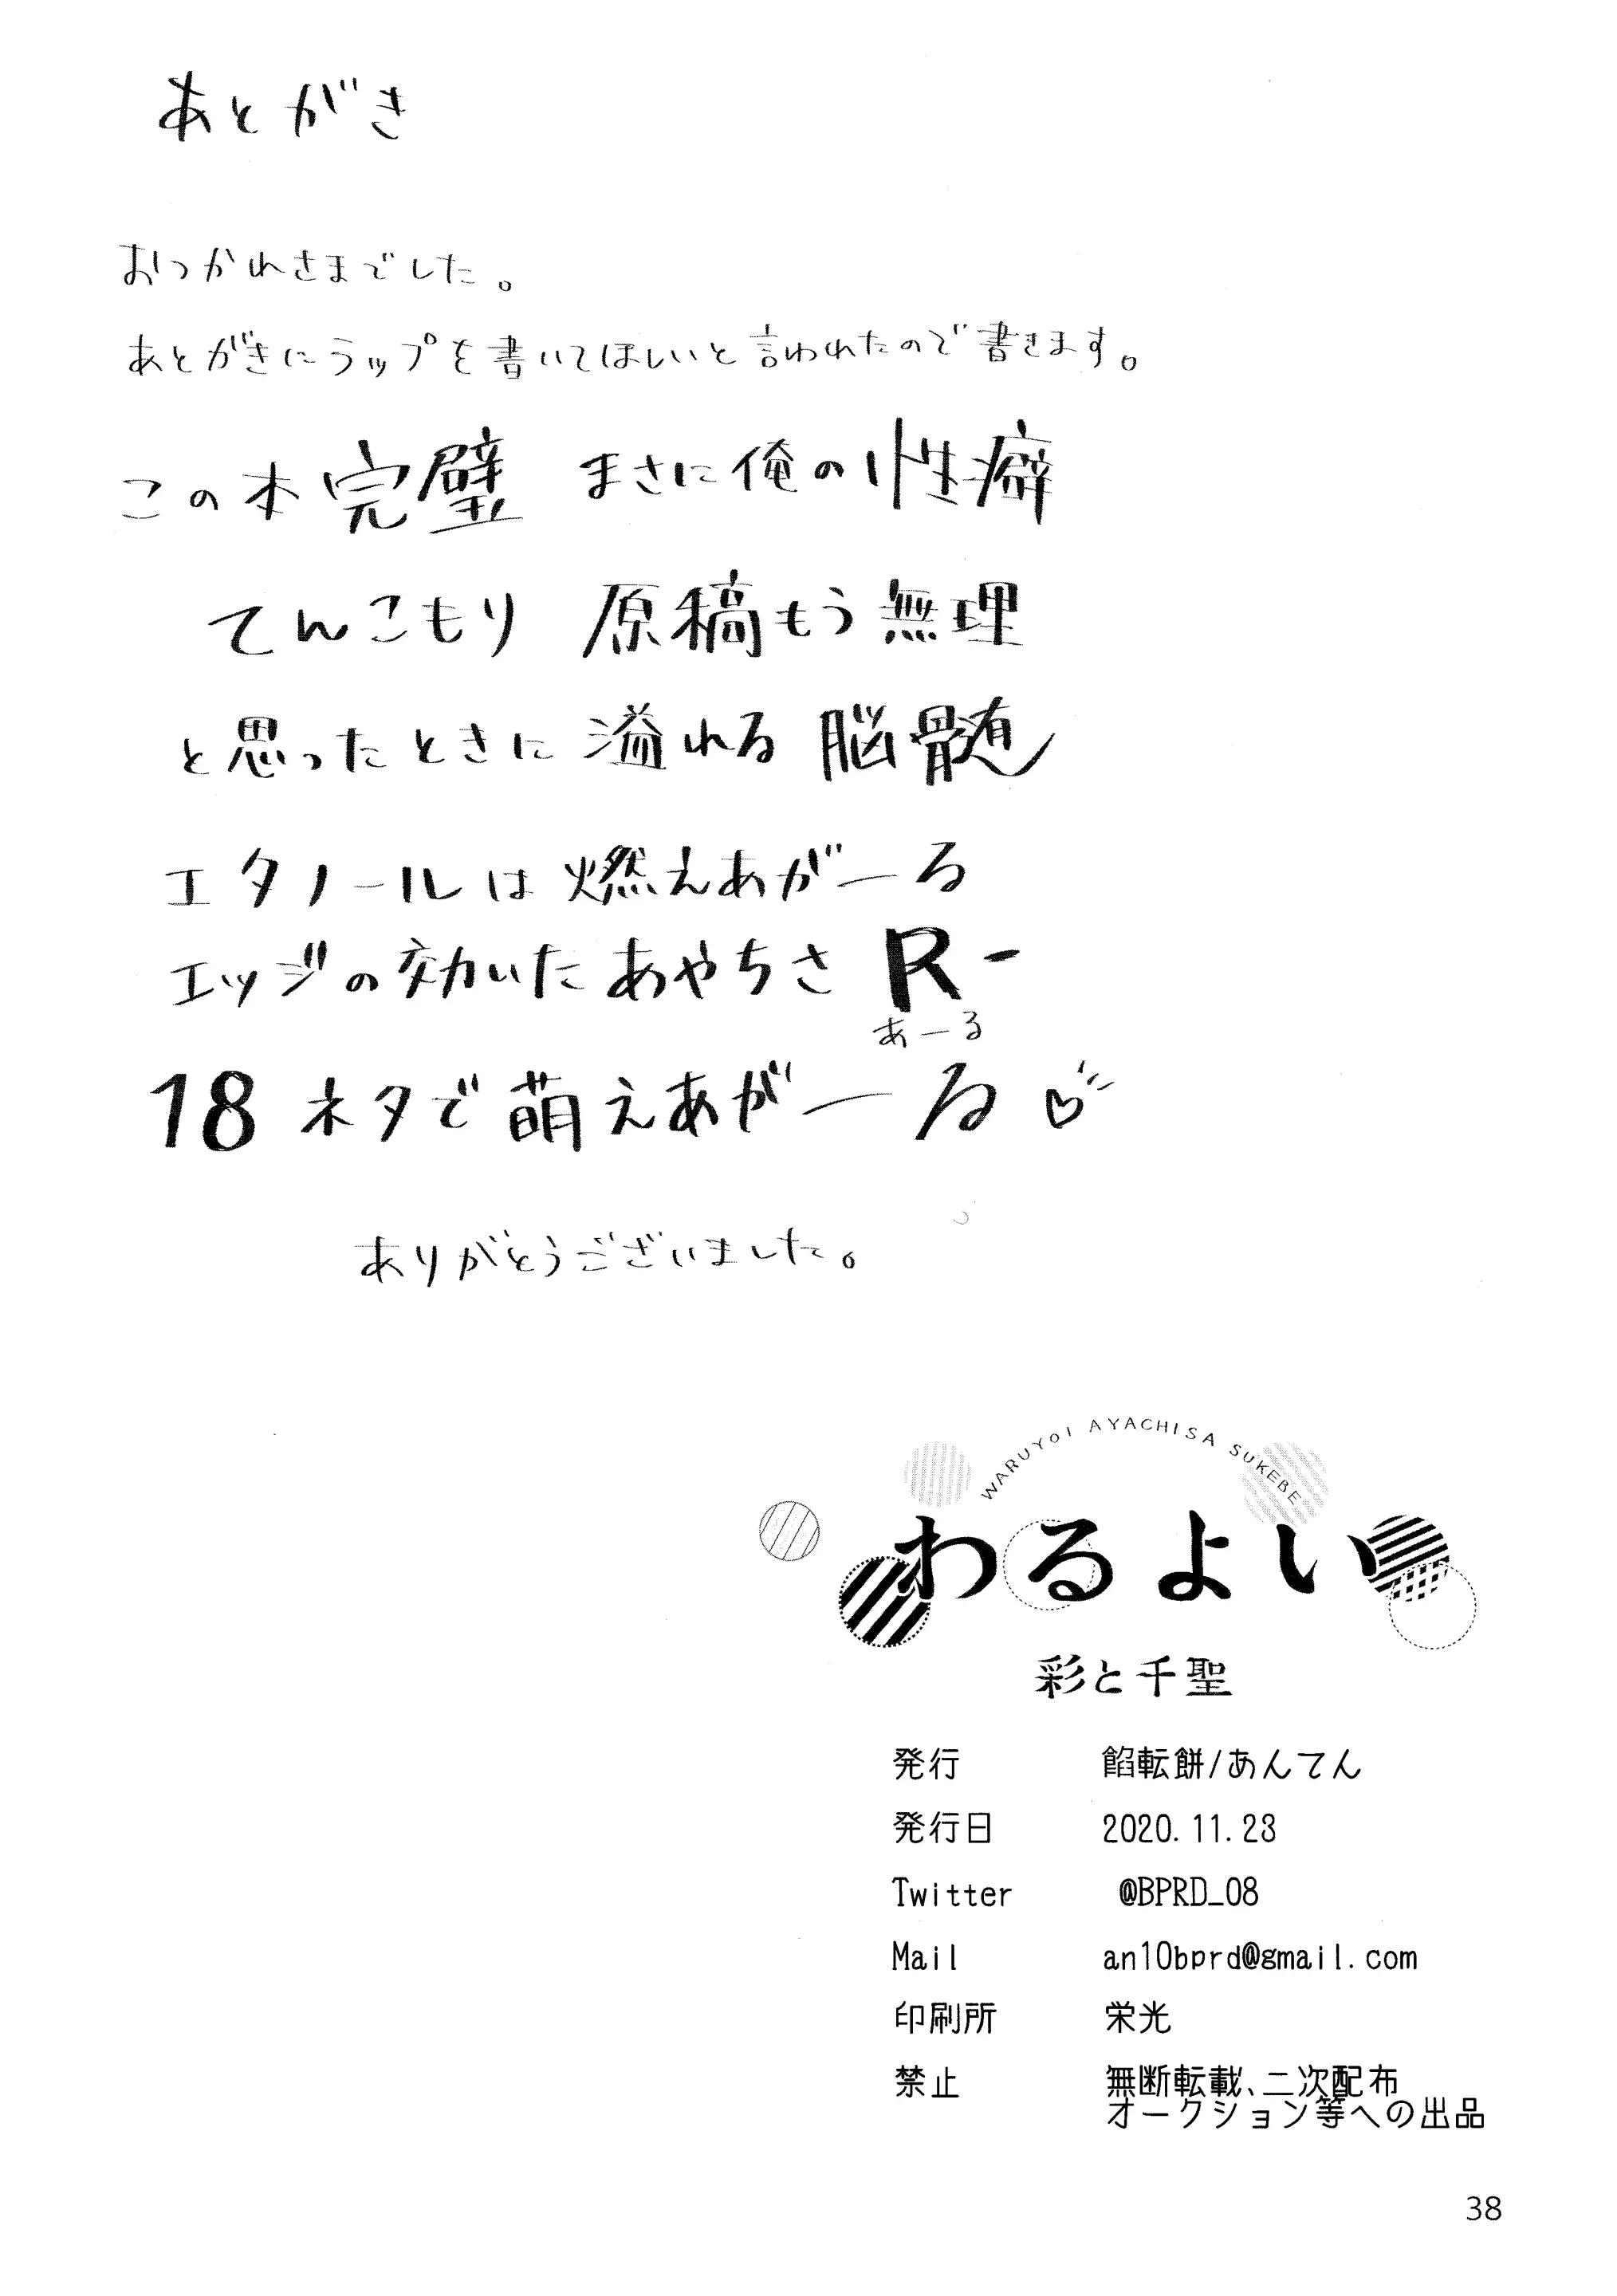 あとがき
おつかれさまでした。
あとがきにラップを書いてほしいと言われたので書きます。
この本完璧 まさに俺の性癖
てんこもり 原稿もう無理
と思ったときに溢れる脳髄
エタノールは燃えあがーる
エッジの効いたあやちさ R-
あーる
18 ネタで萌えあがーる♡
ありがとうございました。
WARUYOI AYACHISA SUKEBE
わるよい
彩と千聖
発行 餡転餅/あんてん
発行日 2020.11.23
Twitter @BPRD_08
Mail an10bprd@gmail.com
印刷所 栄光
禁止 無断転載、二次配布
オークション等への出品
38